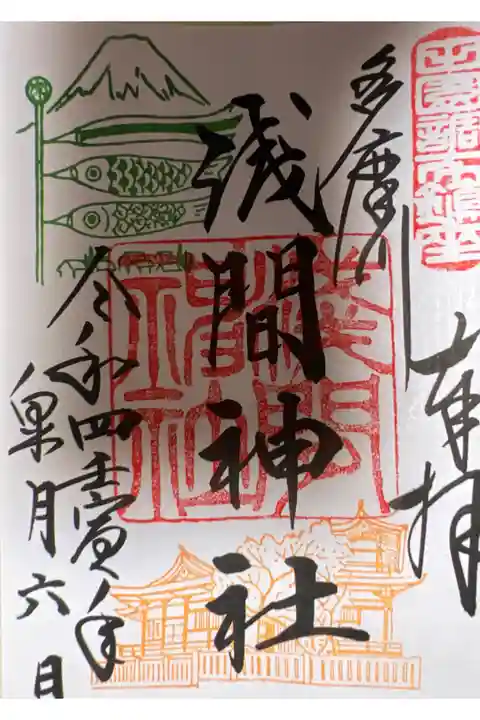 田園調布鎮座
奉拝
多摩川
浅間神社
淺間神社
令和四壬寅年
皐月六日